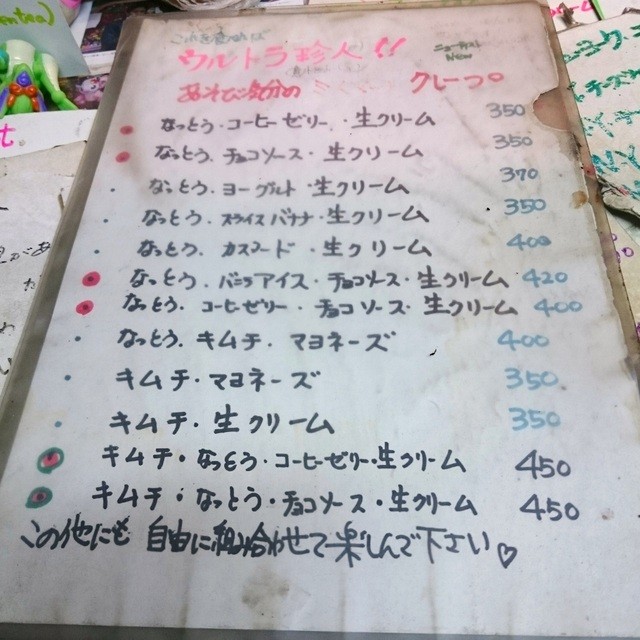 これを食べれば
ウルトラ珍人!!
ニューテイスト
New
あそび気分の クレープ
なっとう・コーヒーゼリー・生クリーム 350
なっとう・チョコソース・生クリーム 350
なっとう・ヨーグルト・生クリーム 370
なっとう・スライスバナナ・生クリーム 350
なっとう・カスタード・生クリーム 400
なっとう・バニラアイス・チョコソース・生クリーム 420
なっとう・コーヒーゼリー・チョコソース・生クリーム 400
なっとう・キムチ・マヨネーズ 400
キムチ・マヨネーズ 350
キムチ・生クリーム 350
キムチ・なっとう・コーヒーゼリー・生クリーム 450
キムチ・なっとう・チョコソース・生クリーム 450
この他にも 自由に組み合わせて楽しんで下さい♡